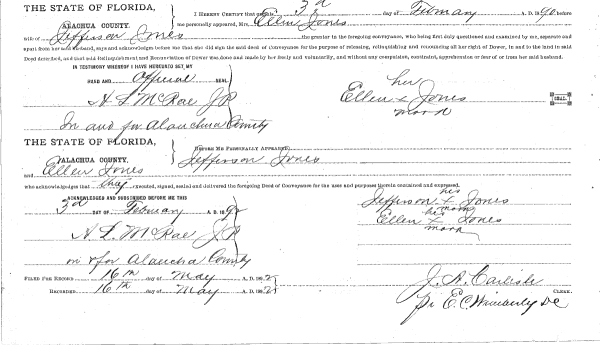 THE STATE OF FLORIDA,
ALACHUA COUNTY.
I HEREBY CERTIFY that on this 3d day of Februay A. D. 1892
me personally appeared, Mrs. Ellen Jones
wife of Jefferson Jones the grantor in the foregoing conveyance, who being first duly questioned and examined by me, separate and
apart from her said husband, says and acknowledges before me that she did sign the said deed of Conveyance for the purpose of releasing, relinquishing and renouncing all her right of Dower, in and to the land in said
Deed described, and that said Relinquishment and Renunciation of Dower was done and made by her freely and voluntarily, and without any compulsion, constraint, apprehension or fear of or from her said husband.
IN TESTIMONY WHEREOF I HAVE HEREUNTO SET MY
HAND AND Official SEAL
A. L. McRae J.P.
In and for Alauchua County
her
Ellen x Jones
mark
SEAL
THE STATE OF FLORIDA,
ALACHUA COUNTY.
BEFORE ME PERSONALLY APPEARED Jefferson Jones
and Ellen Jones
who acknowledges that they executed, signed, sealed and delivered the foregoing Deed of Conveyance for the uses and purposes therein contained and expressed.
ACKNOWLEDGED AND SUBSCRIBED BEFORE ME THIS
3d DAY OF Februay A. D. 1892
A. L. McRae J.P.
in & for Alaucha County
his
Jefferson x Jones
mark
his
Ellen x Jones
mark
FILED FOR RECORD 16th day of May A. D. 1892
RECORDED 16th day of May A. D. 1892
J. A. Carlisle CLERK.
Pr E. C. Wimberly DC